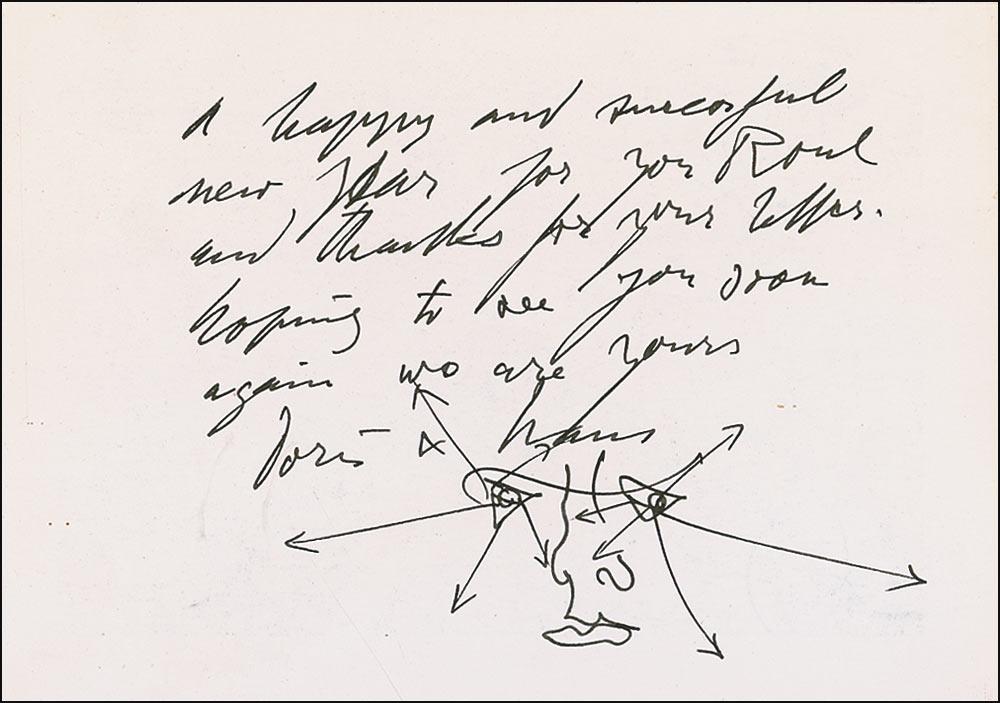 a happy and successful
new year for you Roul
and thanks for your letter.
hoping to see you soon
again we are yours
Doris & hans